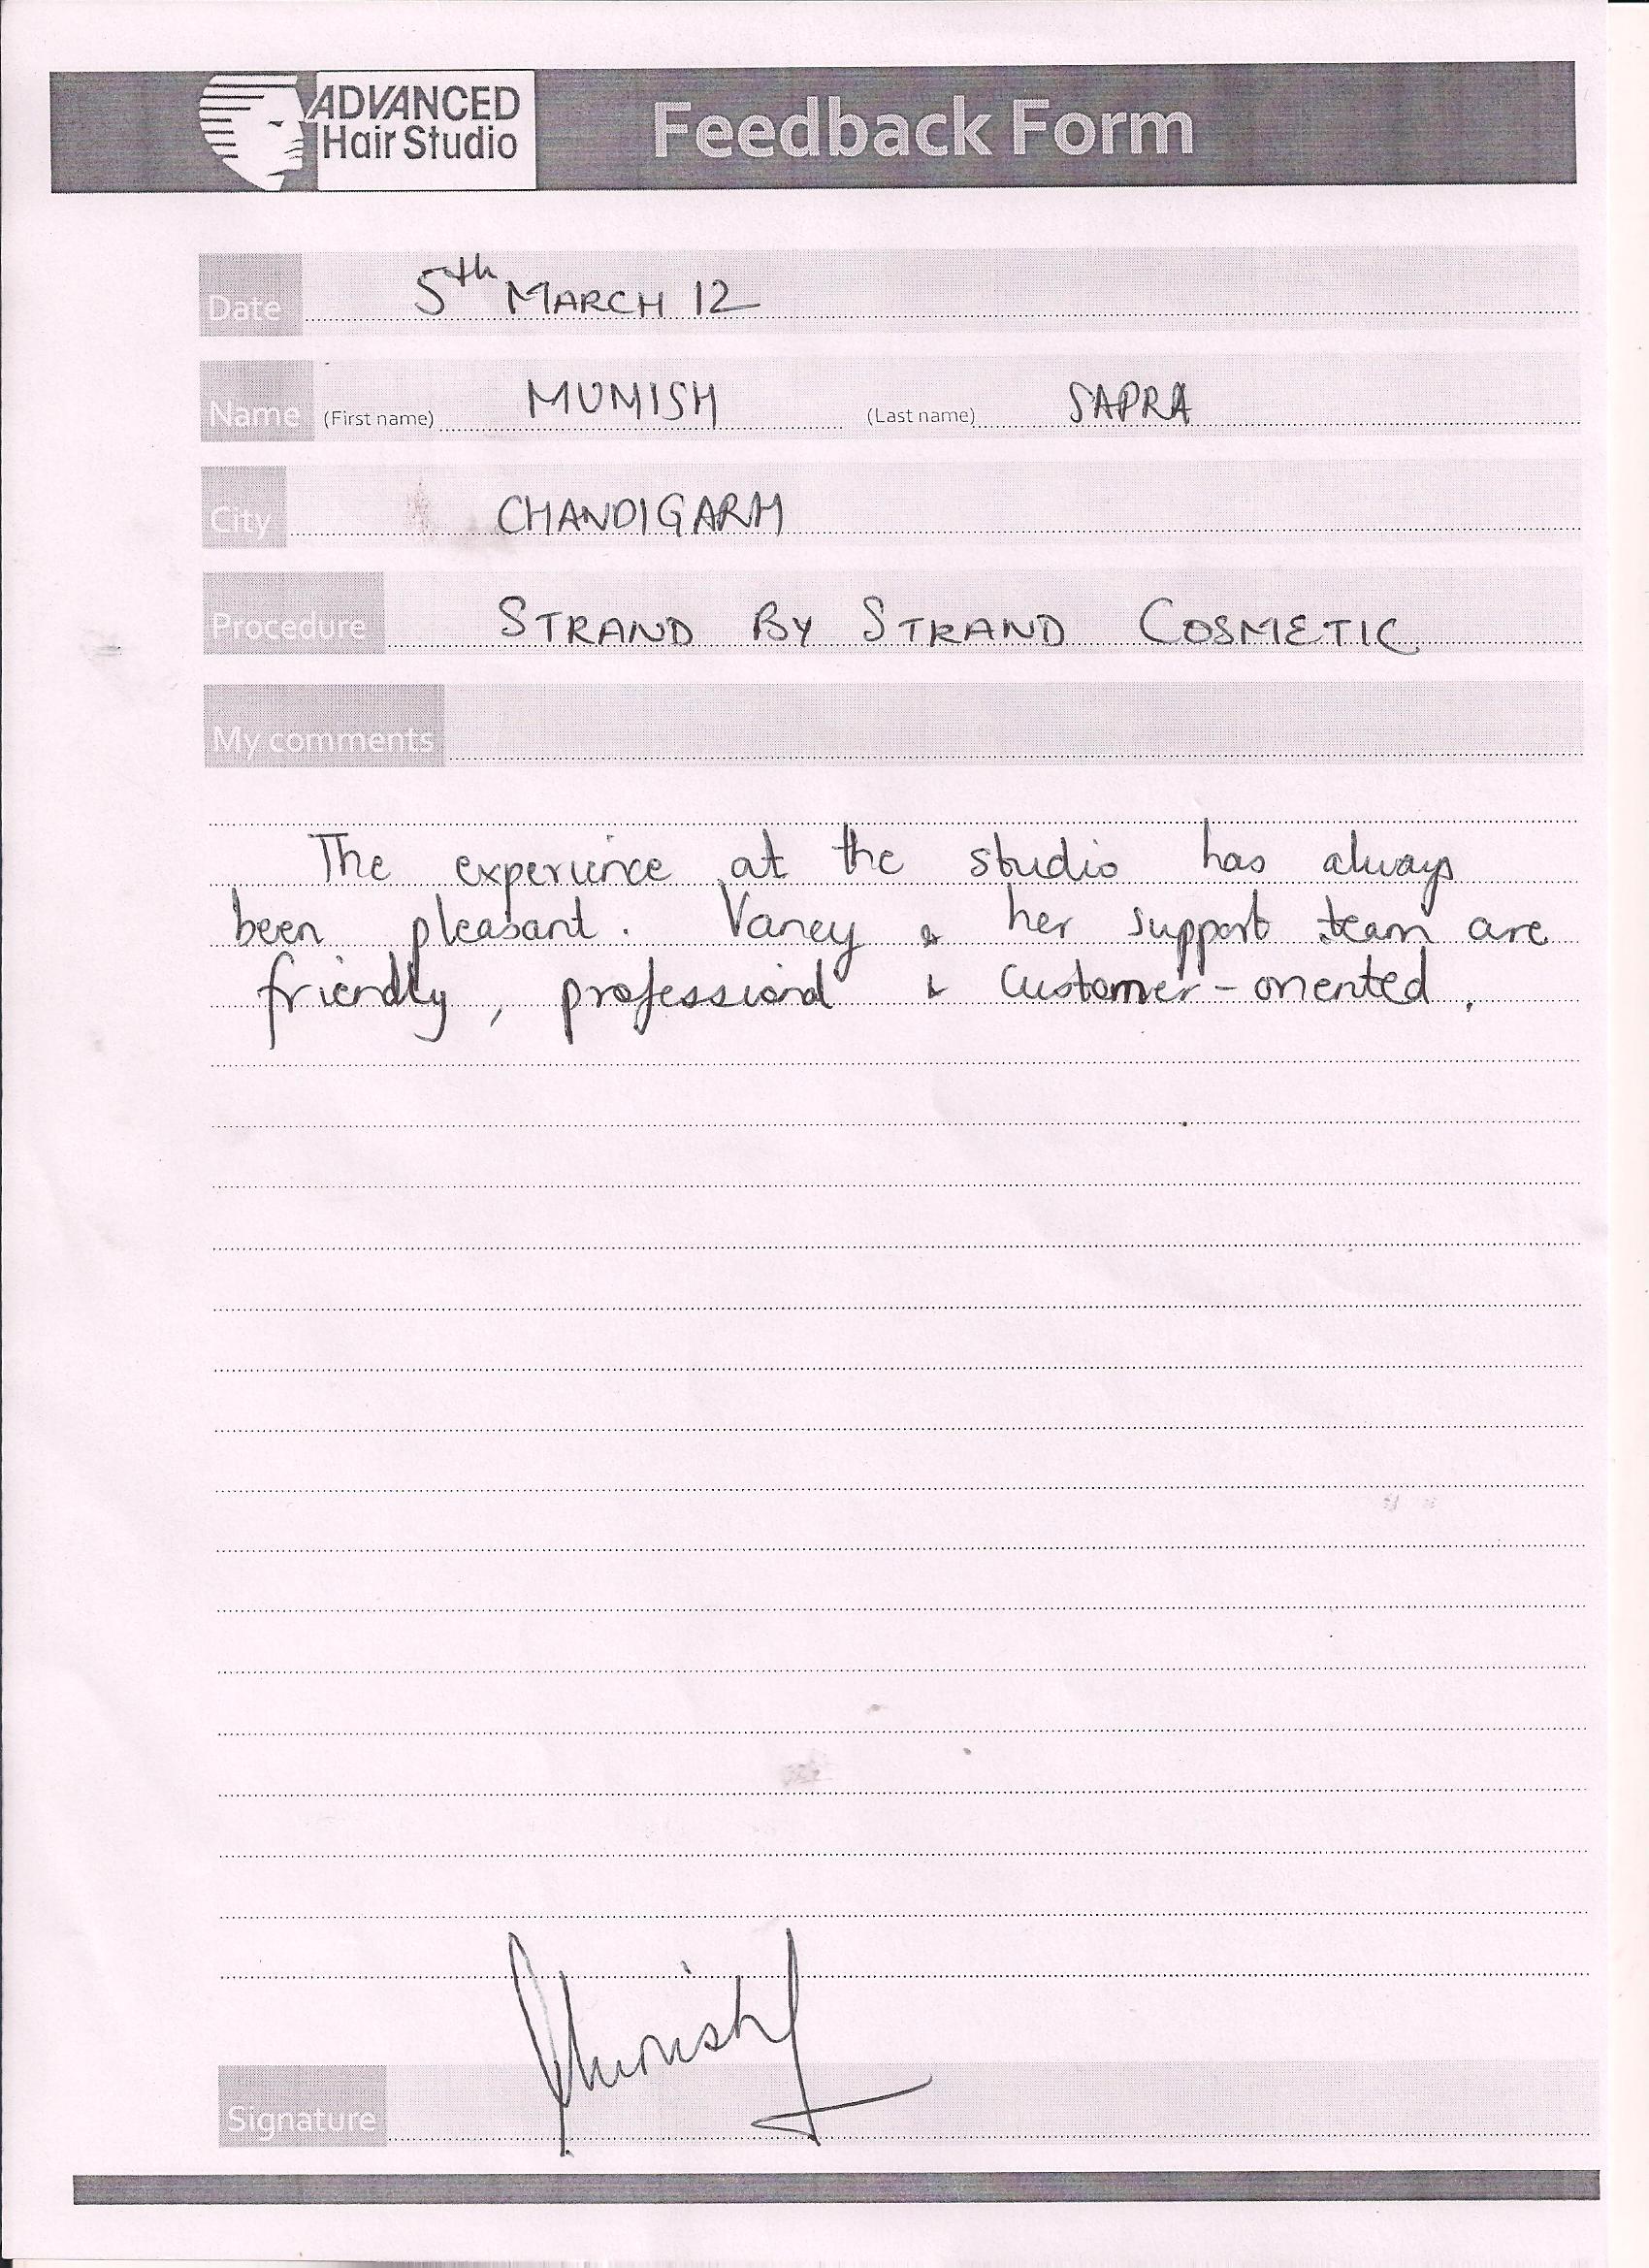 ADVANCED
Hair Studio
Feedback Form
Date 5th MARCH 12
Name (First name) MUNISH (Last name) SAPRA
City CHANDIGARH
Procedure STRAND BY STRAND COSMETIC
My comments
The experience at the studio has always
been pleasant. Vaney & her support team are
friendly, professional & customer-oriented.
Munish
Signature